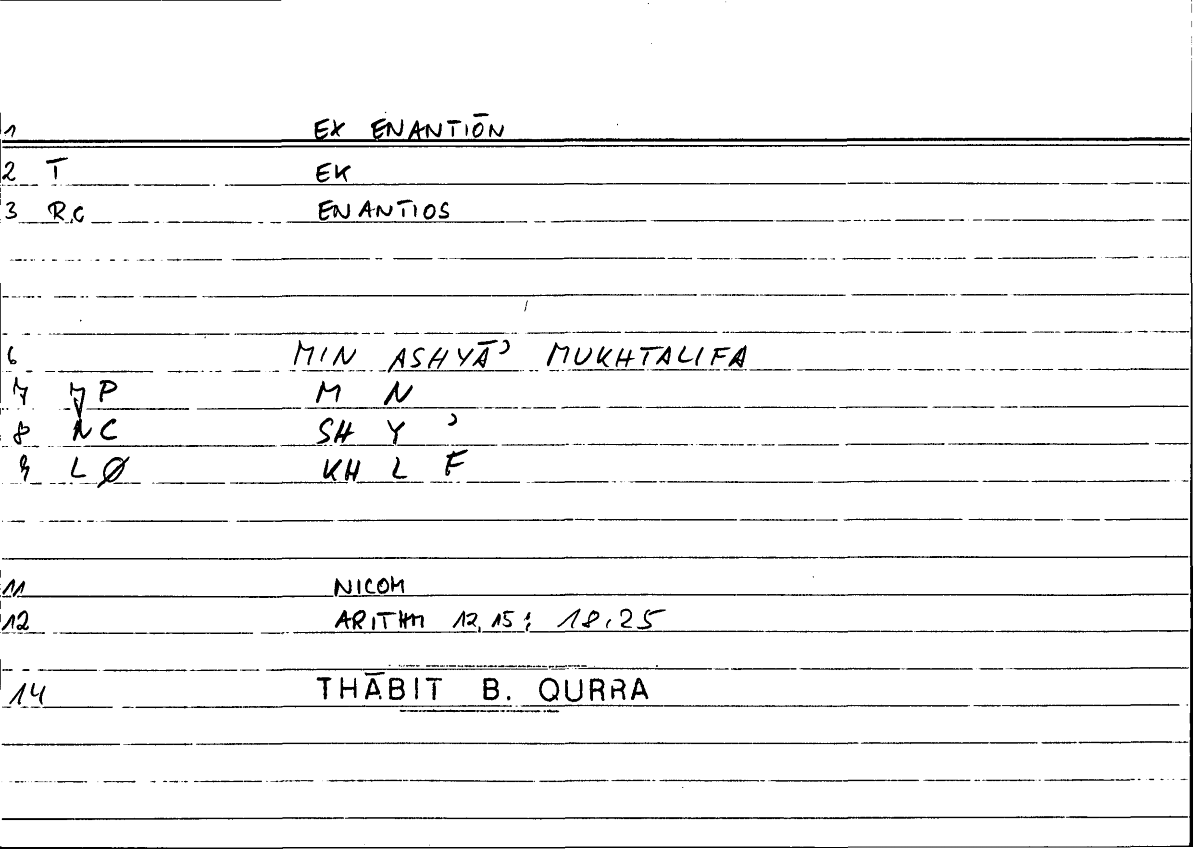 1 EX ENANTIŌN
2 T EK
3 R,C ENANTIOS
6 MIN ASHYĀʾ MUKHTALIFA
7 P M N
8 NC SH Y ʾ
9 LØ KH L F
11 NICOM
12 ARITHM 12,15; 18,25
14 THĀBIT B. QURRA